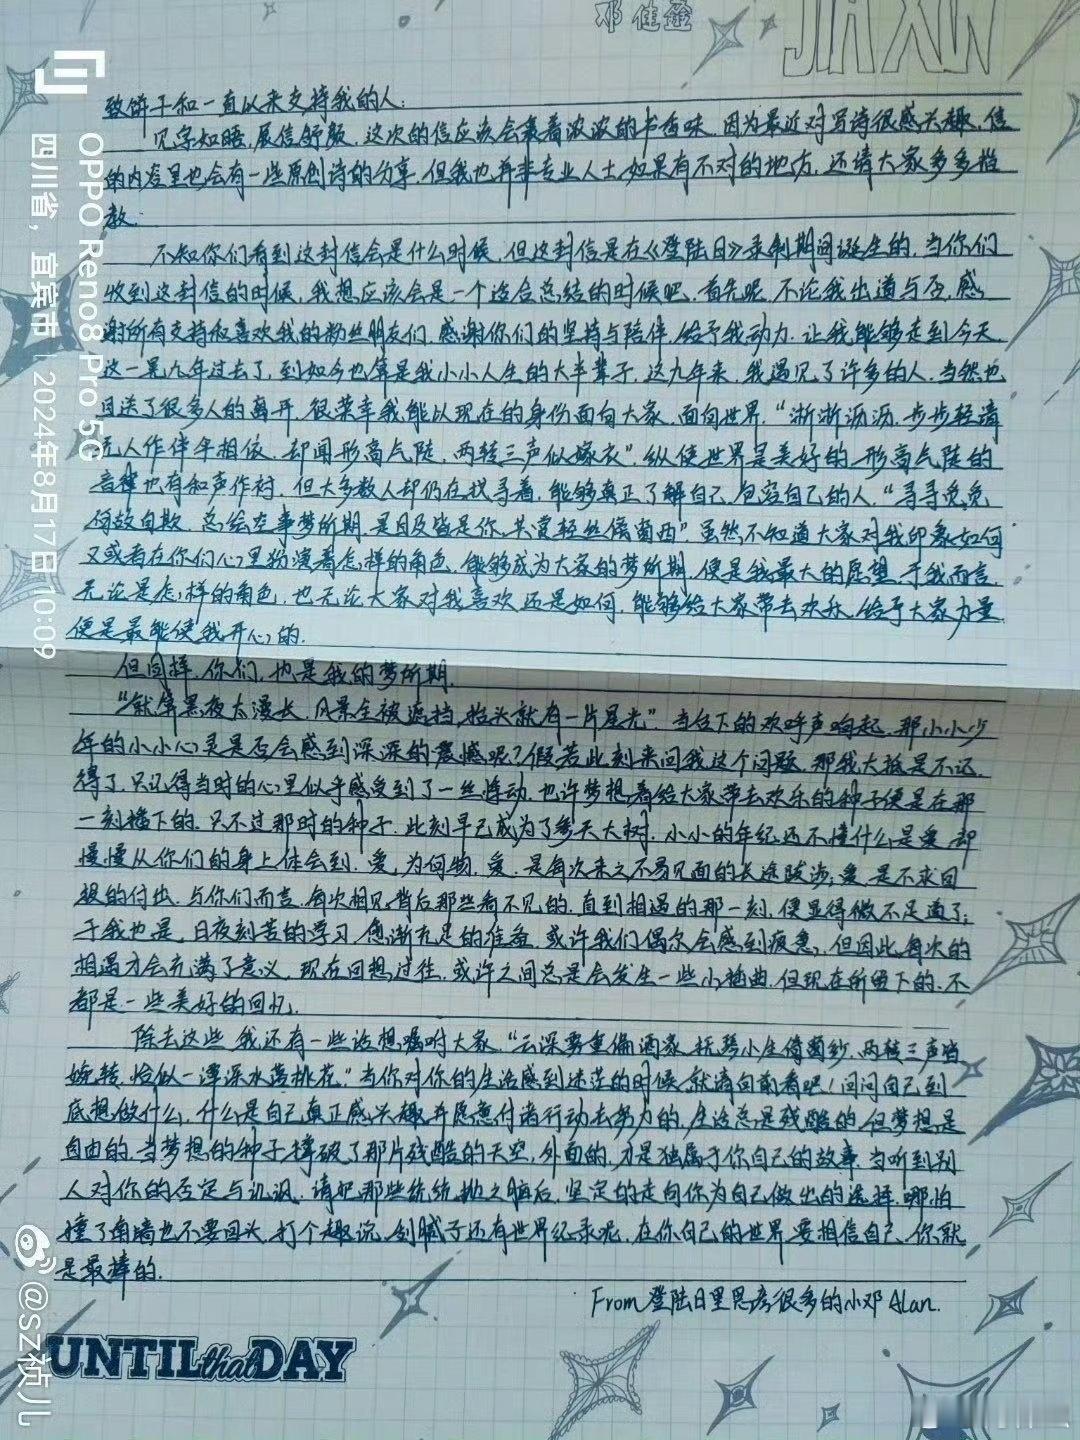 邓佳鑫
JIAXIN
致饼干和一直以来支持我的人：
见字如晤，展信舒颜，这次的信应该会裹着浓浓的书香味，因为最近对写诗很感兴趣，信
的内容里也会有一些原创诗的分享，但我也并非专业人士，如果有不对的地方，还请大家多多指
教.
不知你们看到这封信会是什么时候，但这封信是在《登陆日》录制期间诞生的，当你们
收到这封信的时候，我想应该会是一个适合总结的时候吧，首先呢，不论我出道与否，感
谢所有支持和喜欢我的粉丝朋友们，感谢你们的坚持与陪伴，给予我动力，让我能够走到今天，
这一晃九年过去了，到如今也算是我小小人生的大半辈子，这九年来，我遇见了许多的人，当然也
目送了很多人的离开，很荣幸我能以现在的身份面向大家，面向世界，“淅淅沥沥，步步轻请
无人作伴伞相依，却闻形高气陡，两转三声似嫁衣”，纵使世界是美好的，形高气陡的
音律也有和声作衬，但大多数人却仍在找寻着，能够真正了解自己，包容自己的人，“寻寻觅觅
何故自欺，总绘在事梦所期，是目及皆是你，共赏轻丝倚窗西”，虽然不知道大家对我印象如何
又或者在你们心里扮演着怎样的角色，能够成为大家的梦所期，便是我最大的愿望，于我而言，
无论是怎样的角色，也无论大家对我喜欢还是如何，能够给大家带去欢乐，给予大家力量，
便是最能使我开心的.
但同样，你们，也是我的梦所期.
“就算黑夜太漫长，风景全被遮挡，抬头就有一片星光”，当台下的欢呼声响起，那小小少
年的小小心灵是否会感到深深的震憾呢？假若此刻来问我这个问题，那我大抵是不记
得了，只记得当时的心里似乎感受到了一丝悸动，也许梦想着给大家带去欢乐的种子便是在那
一刻播下的，只不过那时的种子，此刻早已成为了参天大树，小小的年纪还不懂什么是爱，却
慢慢从你们的身上体会到，爱，为何物，爱，是每次来之不易见面的长途跋涉；爱，是不求回
报的付出，与你们而言，每次相见，背后那些看不见的，直到相遇的那一刻，便显得微不足道了；
于我也是，日夜刻苦的学习，愈渐充足的准备，或许我们偶尔会感到疲惫，但因此，每次的
相遇才会充满了意义，现在回想过往，或许之间总是会发生一些小插曲，但现在所留下的，不
都是一些美好的回忆.
除去这些，我还有一些话想嘱咐大家，“云深雾重偏酒家，抚琴小生倚窗纱，两转三声皆
婉转，恰似一潭深水落桃花”，当你对你的生活感到迷茫的时候，就请向前看吧！问问自己到
底想做什么，什么是自己真正感兴趣并愿意付诸行动去努力的，生活总是残酷的，但梦想是
自由的，当梦想的种子撑破了那片残酷的天空，外面的，才是独属于你自己的故事，当听到别
人对你的否定与讥讽，请把那些统统抛之脑后，坚定的走向你为自己做出的选择，哪怕
撞了南墙也不要回头，打个趣说，刮腻子还有世界纪录呢，在你自己的世界要相信自己，你就
是最棒的.
From登陆日里思考很多的小邓Alan.
UNTIL that DAY
OPPO Reno8 Pro 5G
四川省，宜宾市 | 2024年8月17日 10:09
@SZ杭儿